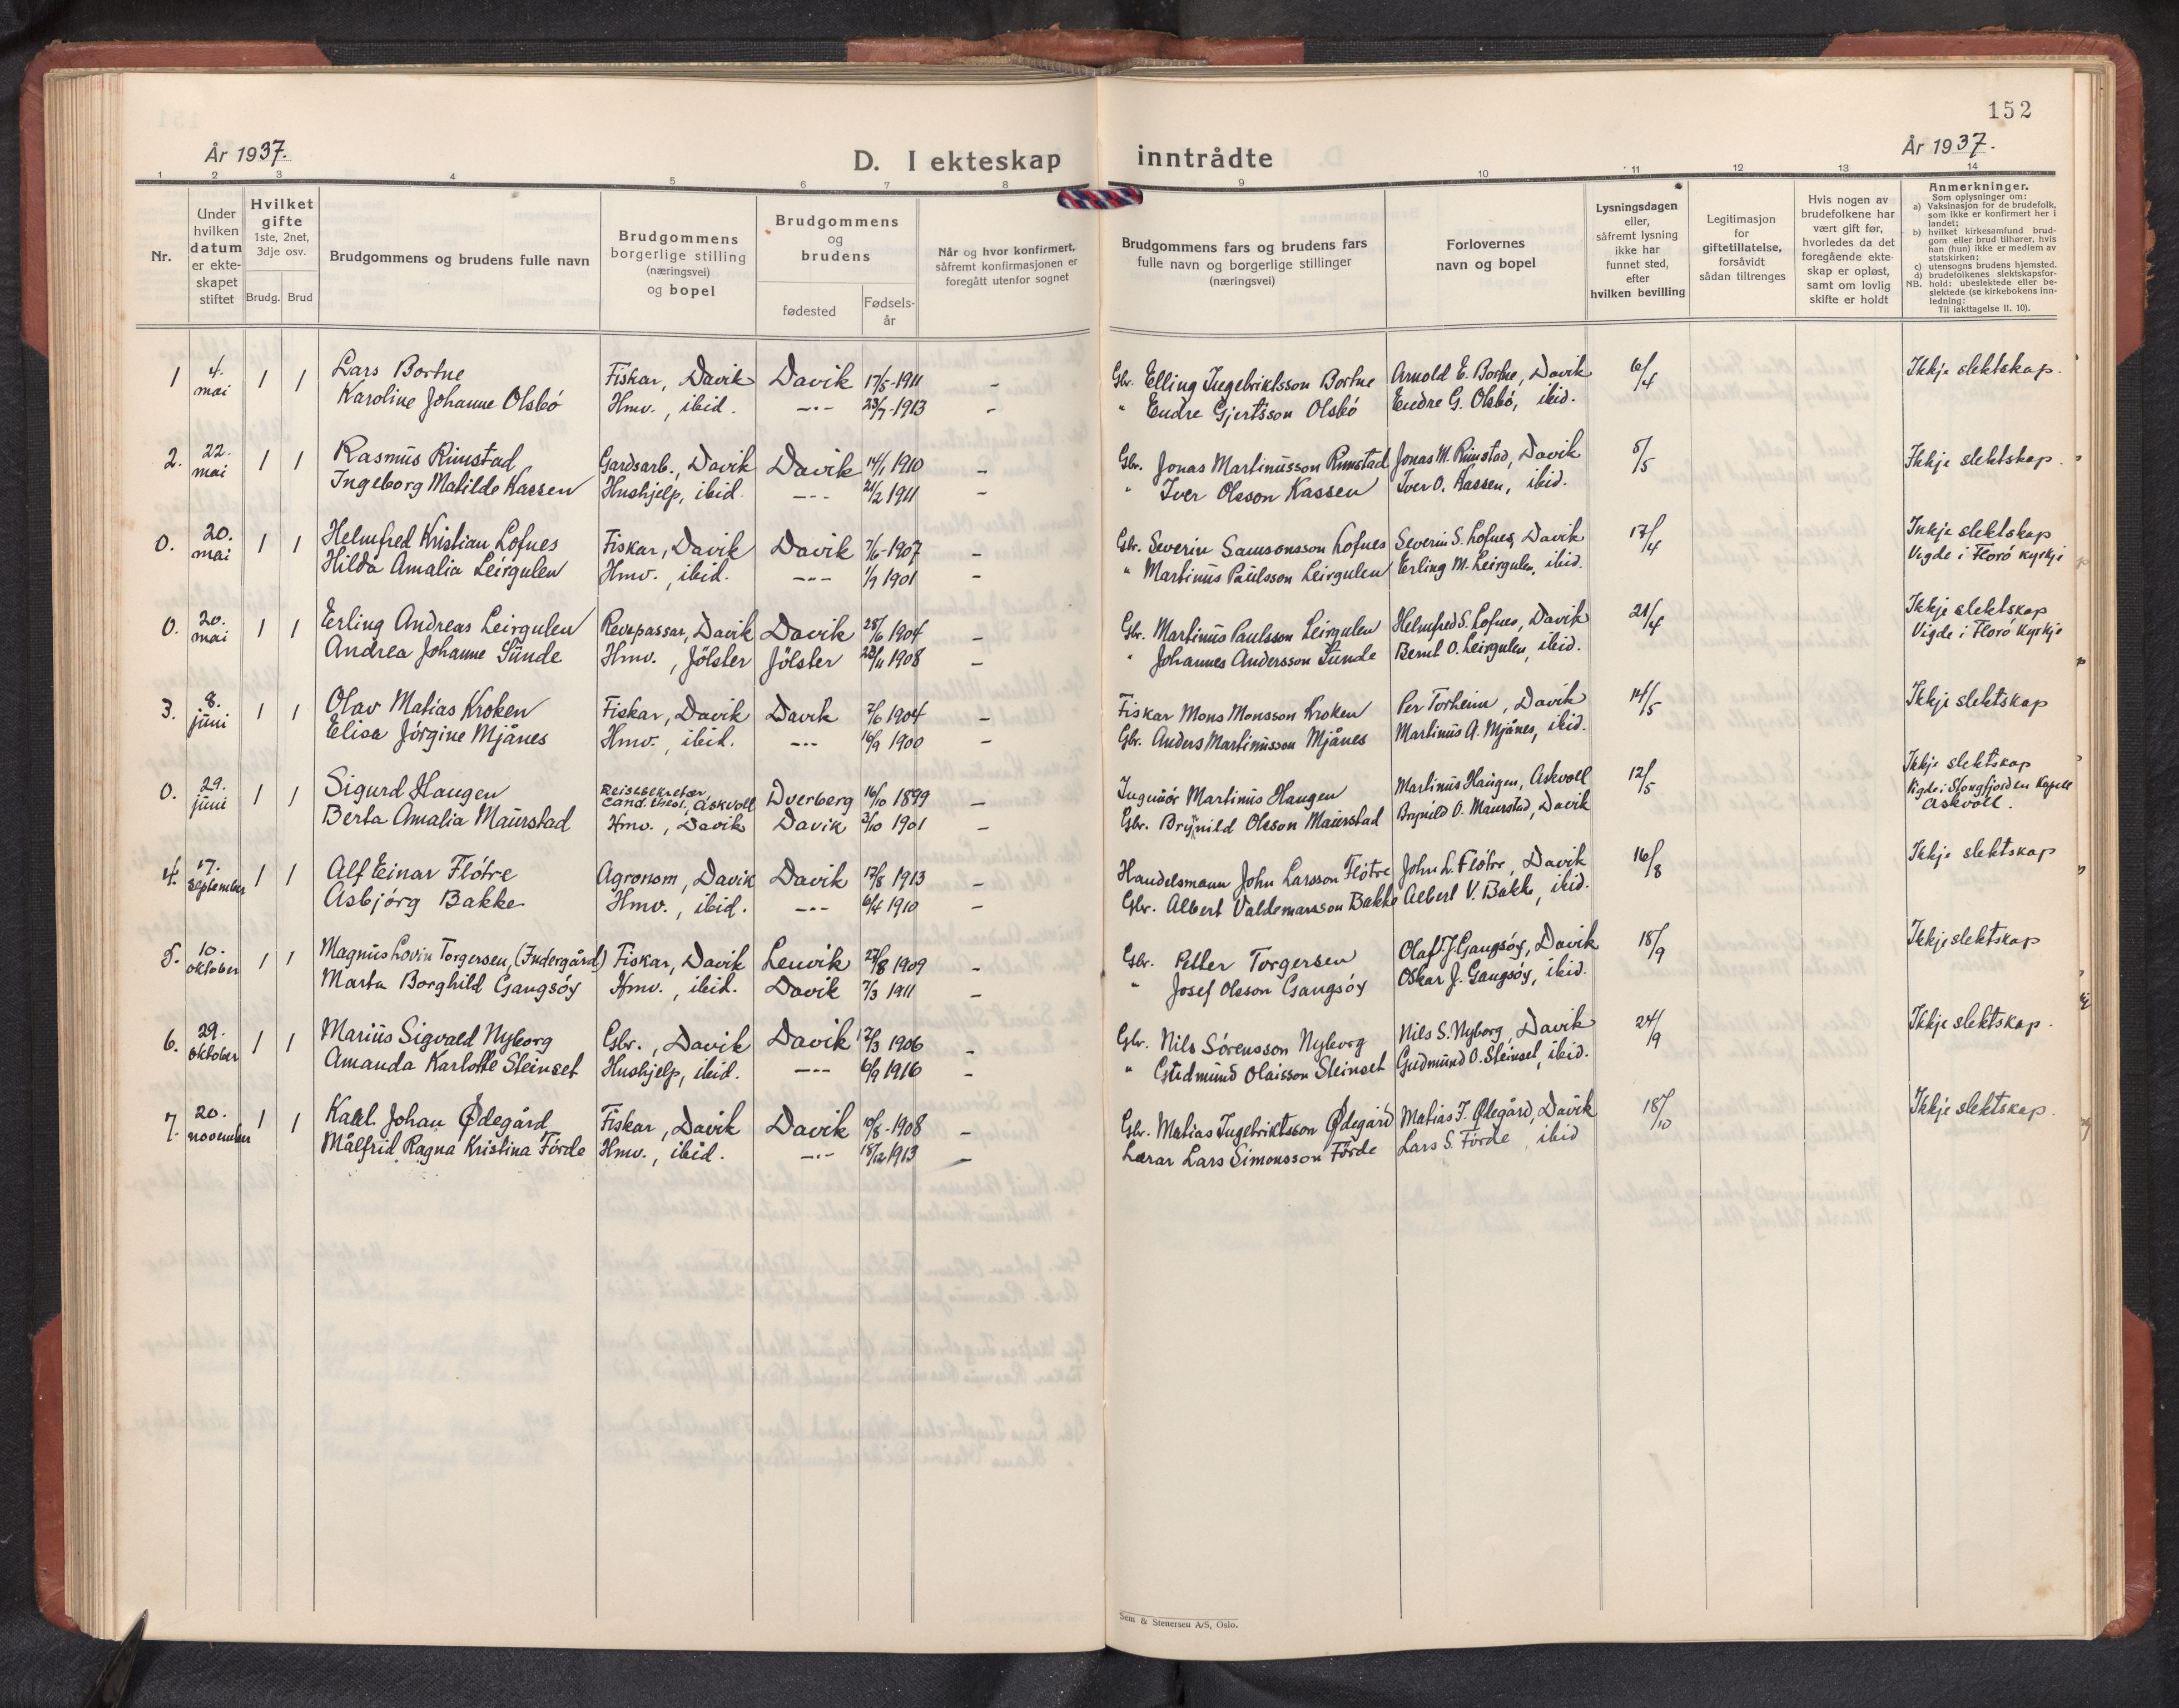 152
År 1937.
D. I ekteskap inntrådte
År 1937.
1 2 3 4 5 6 7 8 9 10 11 12 13 14
Nr.
Under hvilken datum er ekte-skapet stiftet
Hvilket gifte 1ste, 2net, 3dje osv.
Brudg. Brud
Brudgommens og brudens fulle navn
Brudgommens borgerlige stilling (næringsvei) og bopel
Brudgommens og brudens
fødested
Fødsels-år
Når og hvor konfirmert, såfremt konfirmasjonen er foregått utenfor sognet
Brudgommens fars og brudens fars fulle navn og borgerlige stillinger (næringsvei)
Forlovernes navn og bopel
Lysningsdagen eller, såfremt lysning ikke har funnet sted, efter hvilken bevilling
Legitimasjon for giftetillatelse, forsåvidt sådan tiltrenges
Hvis nogen av brudefolkene har vært gift før, hvorledes da det foregående ekte-skap er opløst, samt om lovlig skifte er holdt
Anmerkninger.
Som oplysninger om:
a) Vaksinasjon for de brudefolk, som ikke er konfirmert her i landet;
b) hvilket kirkesamfund brud-gom eller brud tilhører, hvis han (hun) ikke er medlem av statskirken;
c) utensogns brudens hjemsted.
d) brudefolkenes slektskapsfor-hold: ubeslektede eller be-slektede (se kirkebokens inn-ledning:
NB.
Til iakttagelse II. 10).
1 4. mai 1 1 Lars Bortne Fiskar, Davik Davik 17/5-1911 - Gbr. Elling Ingebriktsson Bortne Arnold E. Bortne, Davik 6/4 Ikkje slektskap.
Karoline Johanne Olsbó Hmv., ibid. -"- 23/7-1913 - " Endre Gjertsson Olsbó Endre G. Olsbó, ibid.
2. 22. mai 1 1 Rasmus Rimstad Gardsarb., Davik Davik 14/1 1910 - Gbr. Jonas Martinusson Rimstad Jonas M. Rimstad, Davik 5/5 Ikkje slektskap.
Ingeborg Matilde Kassen Hushjelp, ibid. -"- 21/2 1911 - " Iver Olsson Kassen Iver O. Kassen, ibid.
0. 20. mai 1 1 Helmfred Kristian Lofnes Fiskar, Davik Davik 7/6-1907 - Gbr. Severin Samsonsson Lofnes Severin S. Lofnes, Davik 17/4 Inkje slektskap
Hilda Amalia Leirgulen Hmv., ibid. -"- 1/9 1901 - " Martinus Paulsson Leirgulen Erling M. Leirgulen, ibid. Vigde i Floró kyrkje
0. 20. mai 1 1 Erling Andreas Leirgulen Revepassar, Davik Davik 28/6 1904 - Gbr. Martinus Paulsson Leirgulen Helmfred S. Lofnes, Davik 21/4 Ikkje slektskap
Andrea Johanne Sunde Hmv., Jölster Jölster 23/11 1908 - " Johannes Andersson Sunde Bernt O. Leirgulen, ibid. Vigde i Floró kyrkje
3. 8. juni 1 1 Olav Matias Kroken Fiskar, Davik Davik 2/6 1904 - Fiskar Mons Monsson Kroken Per Torheim, Davik 14/5 Ikkje slektskap
Elisa Jörgine Mjånes Hmv., ibid. -"- 16/9 1900 - Gbr. Anders Martinusson Mjånes Martinus A. Mjånes, ibid.
0. 29. juni 1 1 Sigurd Haugen Reisesekretær Cand. theol., Askvoll Dverberg 16/10 1899 - Ingeniör Martinus Haugen Martinus Haugen, Askvoll 12/5 Ikkje slektskap
Berta Amalia Maurstad Hmv., Davik Davik 3/10 1901 - Gbr. Brynild Olsson Maurstad Brynild O. Maurstad, Davik Vigde i Stongfjorden Kapell Askvoll.
4. 17. september 1 1 Alf Einar Flótre Agronom, Davik Davik 17/8 1913 - Handelsmann John Larsson Flótre John L. Flótre, Davik 16/8 Ikkje slektskap
Asbjórg Bakke Hmv., ibid. -"- 6/4 1910 - Gbr. Albert Valdemarsson Bakke Albert V. Bakke, ibid.
5. 10. oktober 1 1 Magnus Lovin Torgersen, (Indergård) Fiskar, Davik Lenvik 27/8 1909 - Gbr. Petter Torgersen Olaf J. Gangsóy, Davik 18/9 Ikkje slektskap
Marta Borghild Gangsóy Hmv., ibid. Davik 7/3 1911 - " Josef Olsson Gangsóy Oskar J. Gangsóy, ibid.
6. 29. oktober 1 1 Marius Sigvald Nyborg Gbr., Davik Davik 12/3 1906 - Gbr. Nils Sórensson Nyborg Nils S. Nyborg, Davik 24/9 Ikkje slektskap.
Amanda Karlotte Steinset Hushjelp, ibid. -"- 6/9 1916 - " Gudmund Olaisson Steinset Gudmund O. Steinset, ibid.
7. 20. november 1 1 Karl Johan Ødegård Fiskar, Davik Davik 10/8-1908 - Gbr. Matias Ingebriktsson Ødegård Matias I. Ødegård, Davik 18/10 Ikkje slektskap.
Målfrid Ragna Kristina Förde Hmv., ibid. -"- 15/12 1913 - Lærar Lars Simonsson Förde Lars S. Förde, ibid
Sem & Stenersen A/S, Oslo.